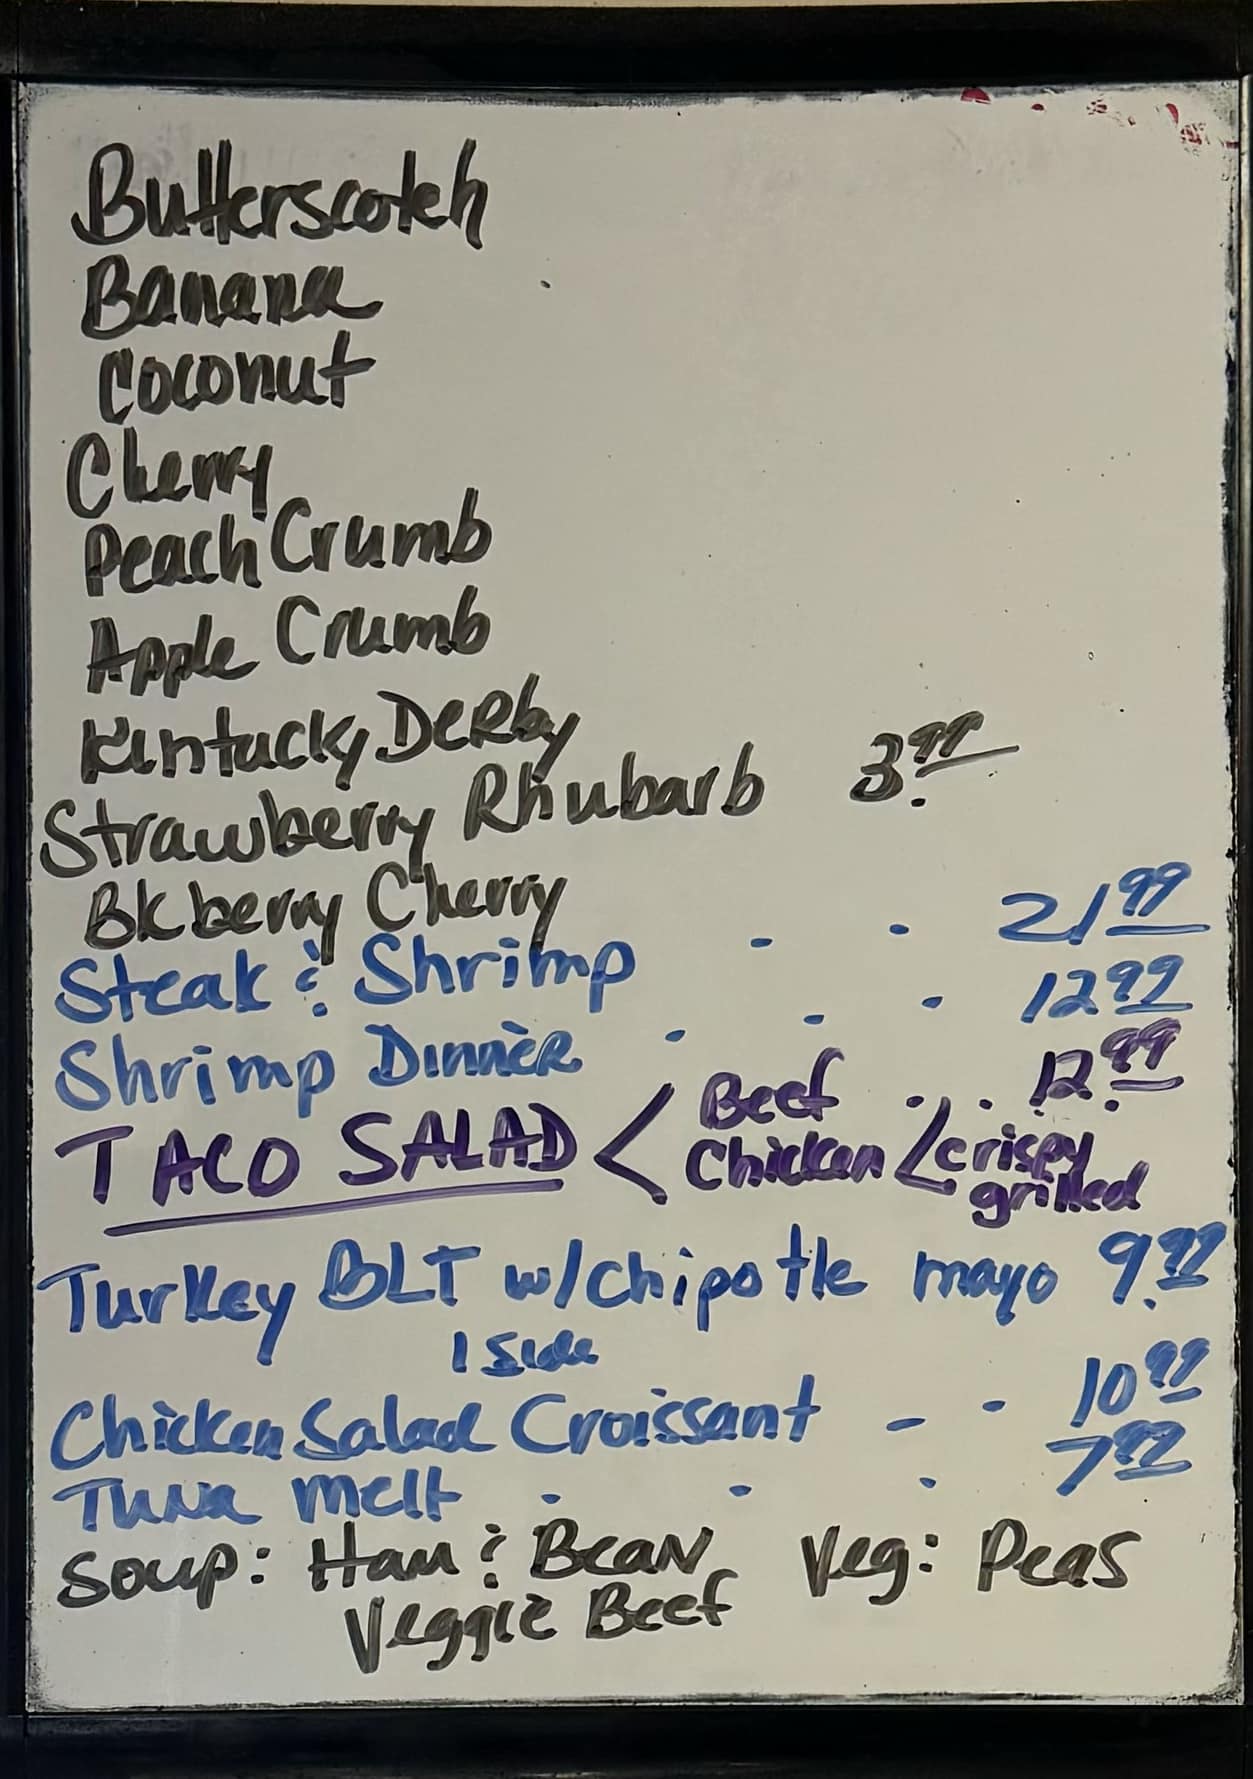 Butterscotch
Banana
Coconut
Cherry
Peach Crumb
Apple Crumb
Kentucky Derby
Strawberry Rhubarb 3.99
Bkberry Cherry
Steak & Shrimp - - 21 99
Shrimp Dinner - - - 12 99
TACO SALAD < Beef . . . 12.99
Chicken < crispy
grilled
Turkey BLT w/chipotle mayo 9.99
1 side
Chicken Salad Croissant - - 10 99
Tuna melt - - - 7 99
Soup: Ham & Bean Veg: Peas
Veggie Beef